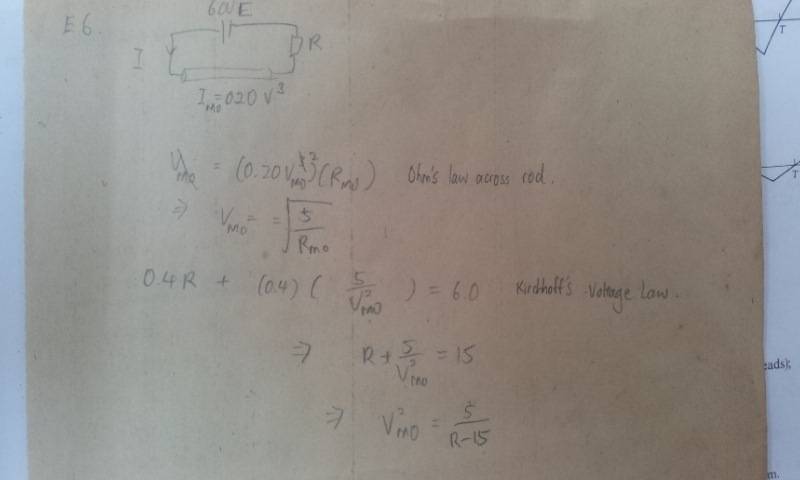 E6.
6.0V E
I
R
I_MO = 0.20 V³
V_MO = (0.20 V_MO³)(R_MO) Ohm's law across rod.
⇒ V_MO = = √(5/R_MO)
0.4R + (0.4) (5/V²_MO) = 6.0 Kirchhoff's Voltage Law.
⇒ R + 5/V²_MO = 15
⇒ V²_MO = 5/R-15
T
T
eads);
m.